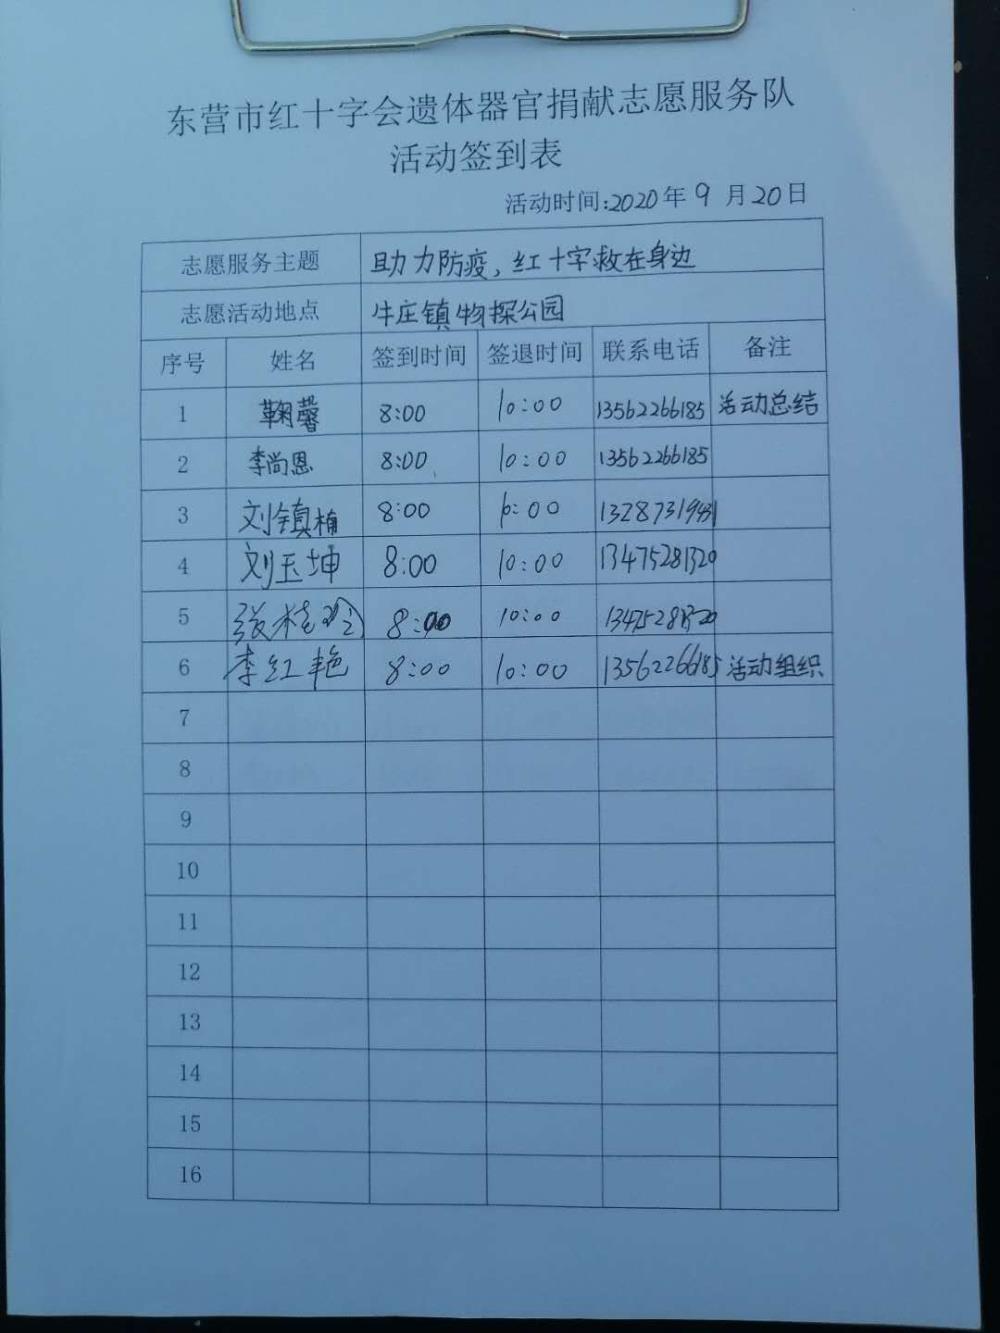 东营市红十字会遗体器官捐献志愿服务队
活动签到表
活动时间:2020年9月20日
志愿服务主题 助力防疫,红十字救在身边
志愿活动地点 牛庄镇物探公园
序号 姓名 签到时间 签退时间 联系电话 备注
1 鞠馨 8:00 10:00 13562266185 活动总结
2 李尚恩 8:00 10:00 13562266185
3 刘镇楠 8:00 10:00
4 刘玉坤 8:00 10:00 13475281320
5 张桂玲 8:00 10:00 13475281320
6 李红艳 8:00 10:00 13562266185 活动组织
7
8
9
10
11
12
13
14
15
16